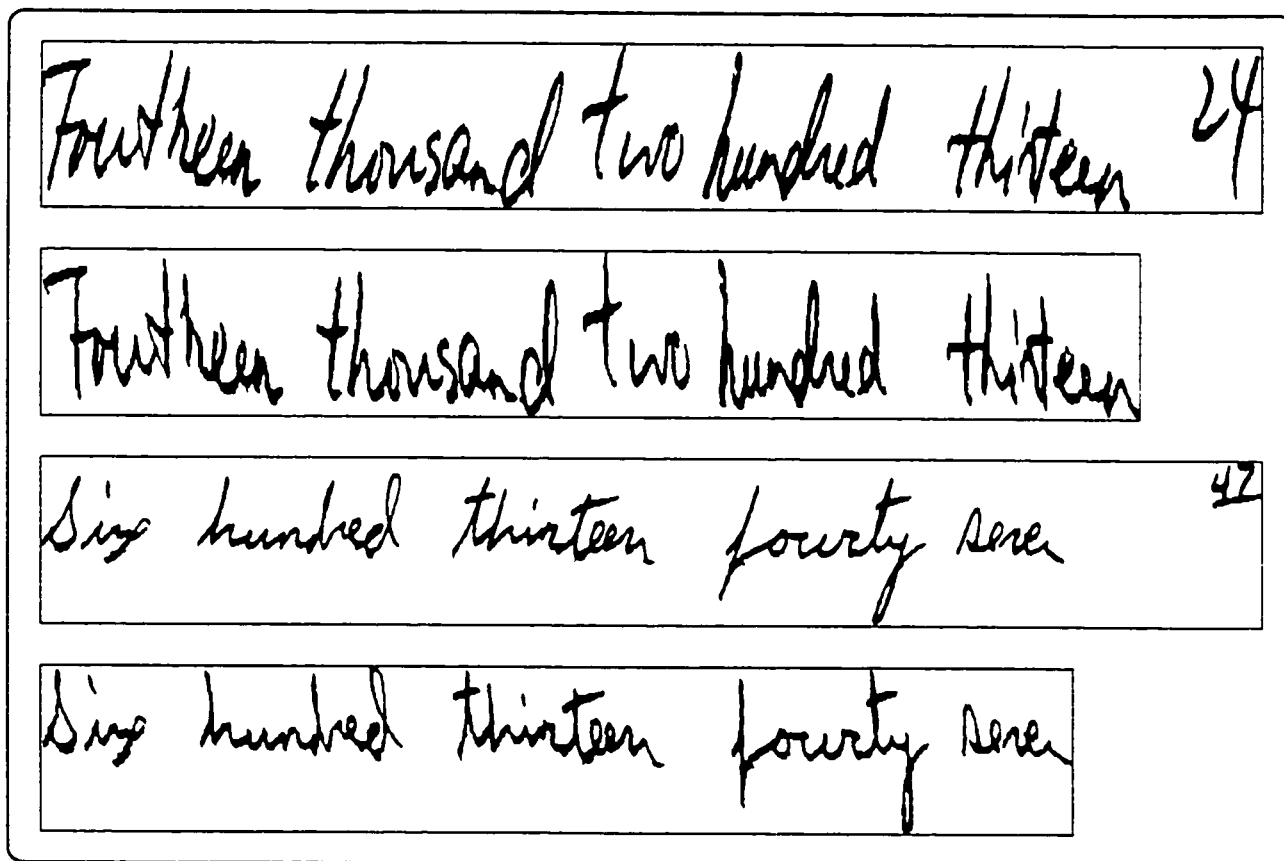 Fourtheen thousand two hundred thirteen 24
Fourtheen thousand two hundred thirteen
Six hundred thirteen fourty seven 47
Six hundred thirteen fourty seven